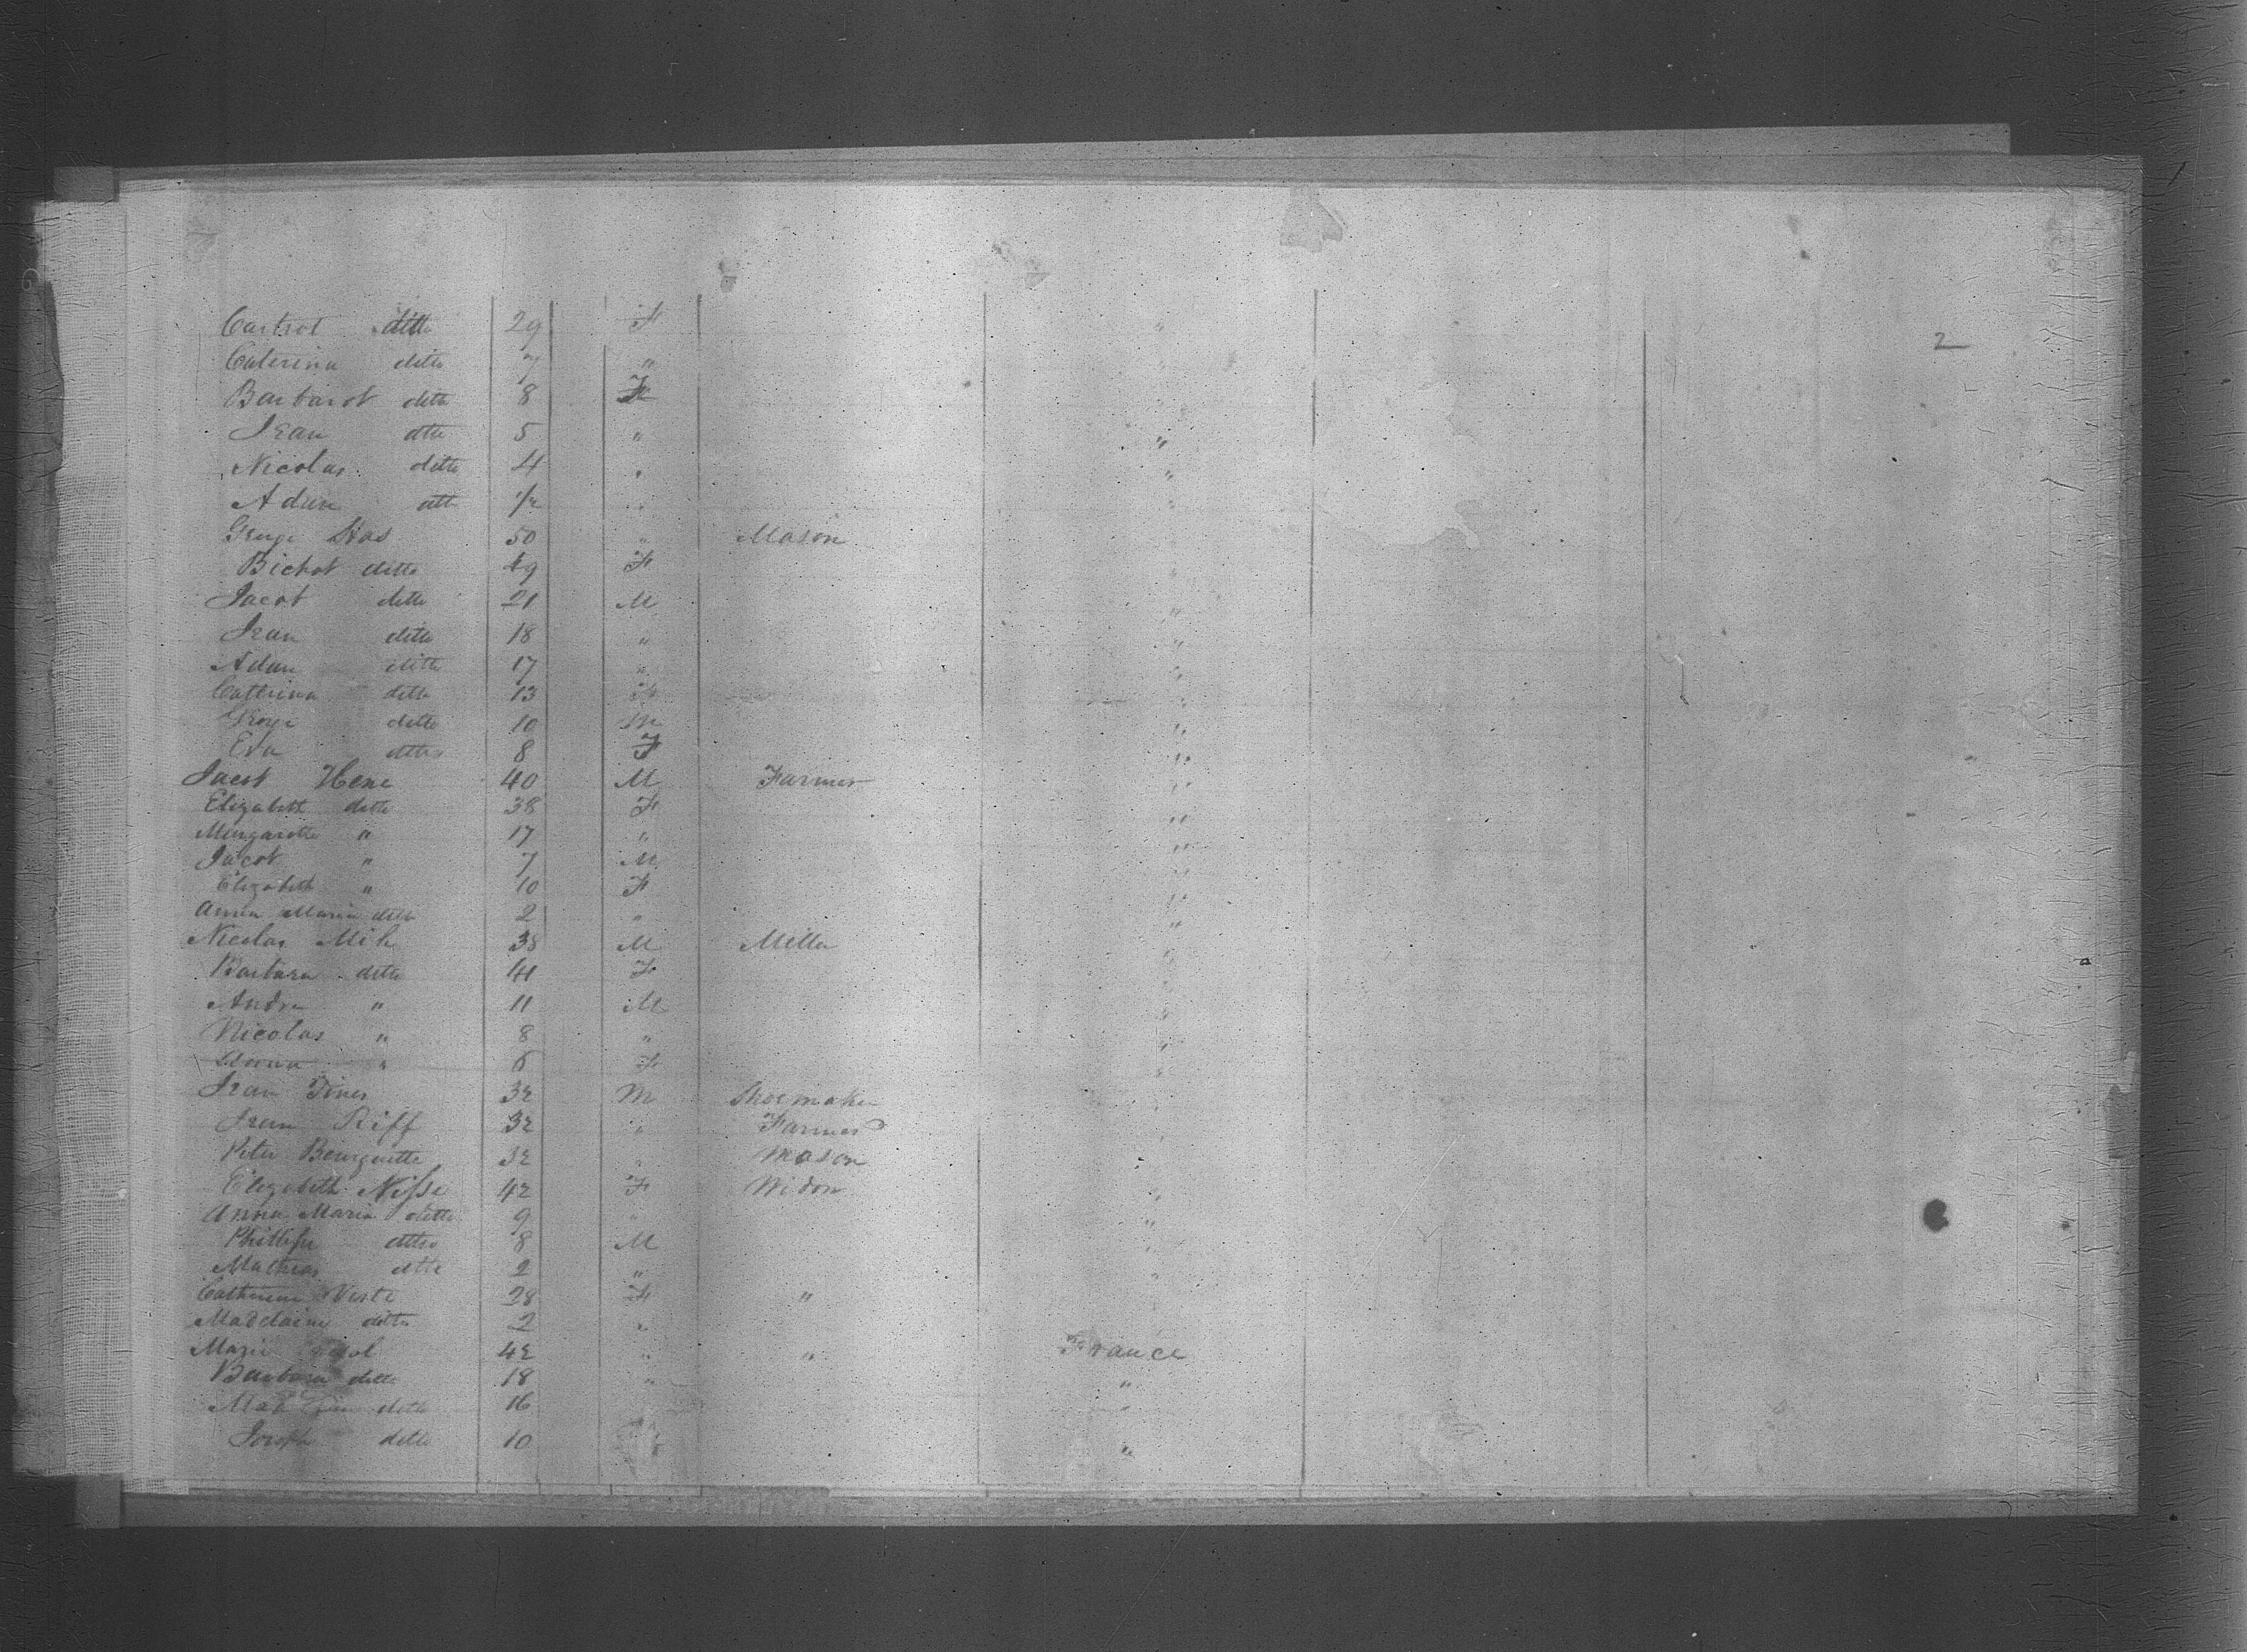 ditto 29 F "
2
Caterina ditto 7 "
Barbarot ditto 8 F
Jean ditto 5 " "
Nicolas ditto 4 " "
Adam ditto 1/2 " "
George Stas 50 " Mason
Bichot ditto 49 F "
Jacob ditto 21 M "
Jean ditto 18 " "
Adam ditto 17 " "
Catterina ditto 13 F "
George ditto 10 M "
Eva ditto 8 F "
Jacob Hene 40 M Farmer "
Elizabeth ditto 38 F "
Margarethe " 17 " "
Jacob " 7 M "
Elizabeth " 10 F "
Anna Maria ditto 2 " "
Nicolas 38 M Miller "
Barbara ditto 41 F "
Andre " 11 M "
Nicolas " 8 " "
" 6 F "
Jean 32 M Shoemaker "
Jean Riff 32 " Farmer "
Peter 32 " Mason
Elizabeth Nisse 42 F Widow "
Anna Maria ditto 9 " "
ditto 8 M "
Mathias ditto 2 " "
Catherine Viste 28 F "
Madelaine ditto 2 "
Marie 42 " " France
Barbara ditto 18 " "
ditto 16 "
Joseph ditto 10 "